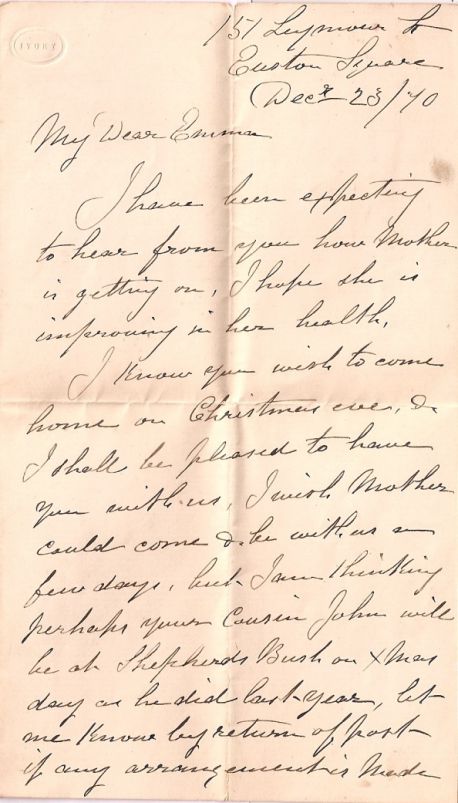 IVORY
151 Seymour St
Euston Square
Decr 23/70
My Dear Emma
I have been expecting
to hear from you how Mother
is getting on, I hope she is
improving in her health,
I know you wish to come
home on Christmas eve, &
I shall be pleased to have
you with us, I wish Mother
could come & be with us a
few days, but I am thinking
perhaps your Cousin John will
be at Shepherds Bush on Xmas
day as he did last year, let
me know by return of post
if any arrangement is made